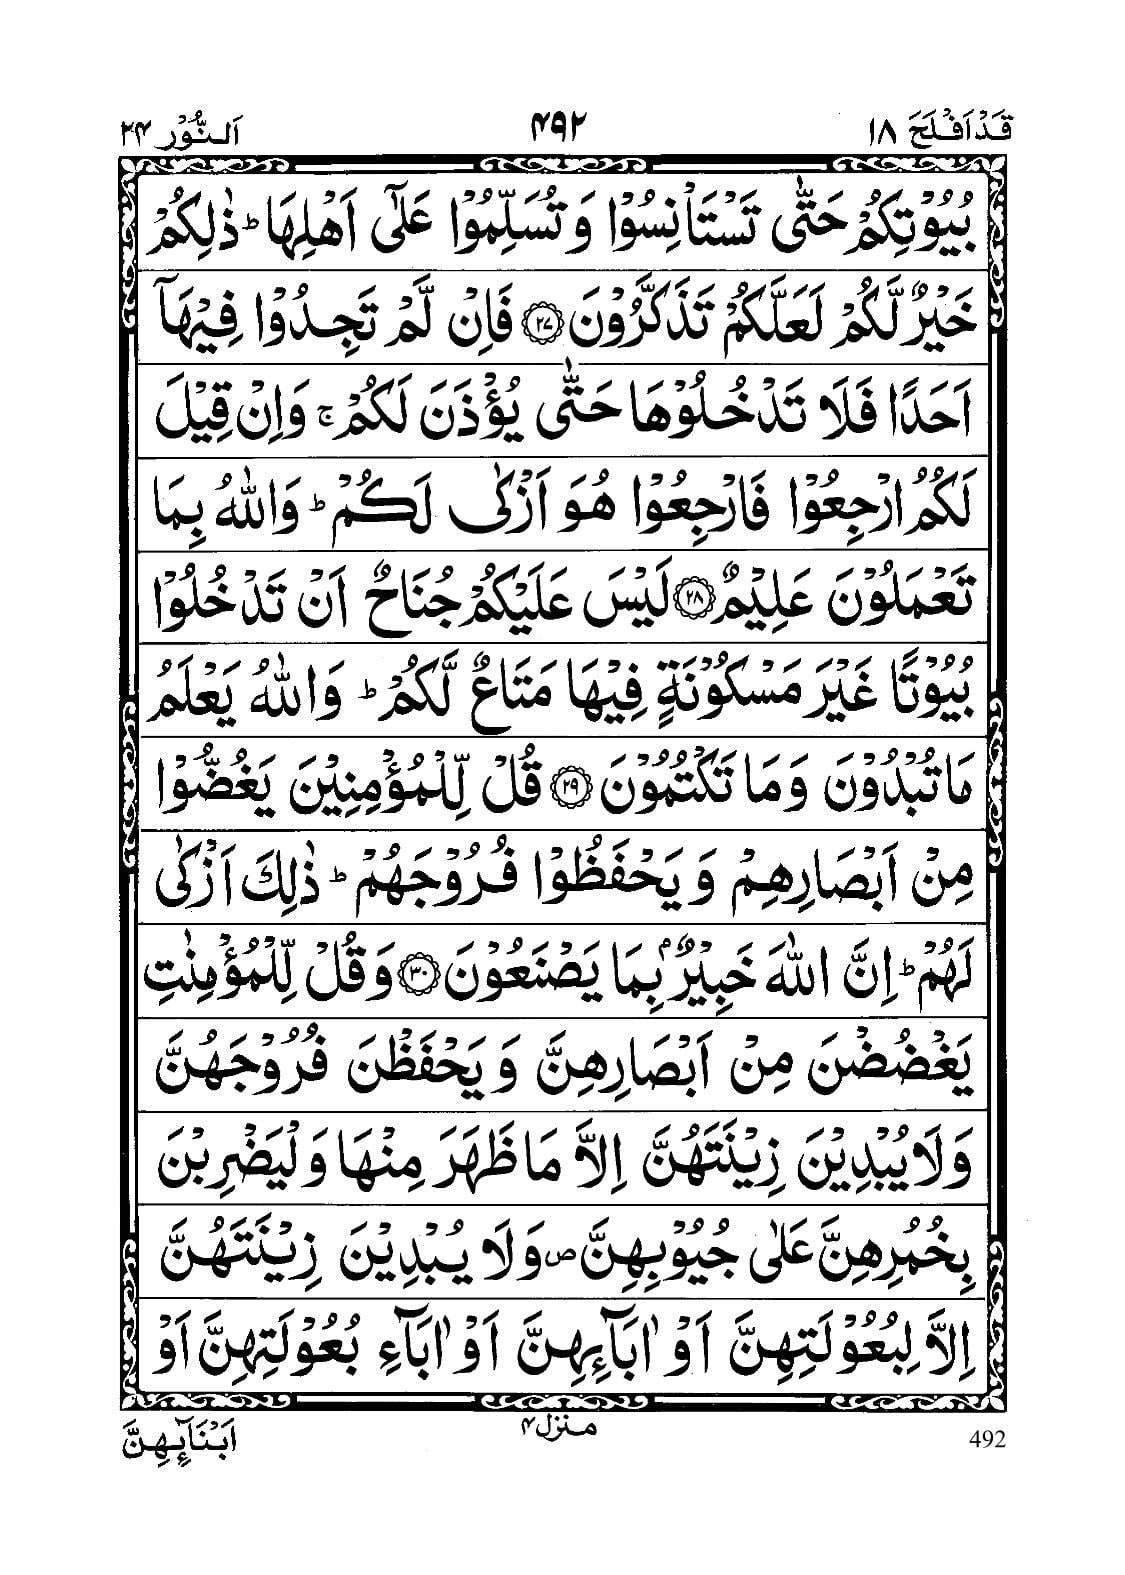 قَدْ اَفْلَحَ ١٨ ۴۹۲ اَلنُّوْر ٢۴
بُيُوْتِكُمْ حَتّٰى تَسْتَاْنِسُوْا وَ تُسَلِّمُوْا عَلٰٓى اَهْلِهَا ؕ ذٰلِكُمْ
خَيْرٌ لَّكُمْ لَعَلَّكُمْ تَذَكَّرُوْنَ ﴿٢٧﴾ فَاِنْ لَّمْ تَجِدُوْا فِيْهَاۤ
اَحَدًا فَلَا تَدْخُلُوْهَا حَتّٰى يُؤْذَنَ لَكُمْ ۚ وَاِنْ قِيْلَ
لَكُمُ ارْجِعُوْا فَارْجِعُوْا هُوَ اَزْكٰى لَكُمْ ؕ وَاللّٰهُ بِمَا
تَعْمَلُوْنَ عَلِيْمٌ ﴿٢٨﴾ لَيْسَ عَلَيْكُمْ جُنَاحٌ اَنْ تَدْخُلُوْا
بُيُوْتًا غَيْرَ مَسْكُوْنَةٍ فِيْهَا مَتَاعٌ لَّكُمْ ؕ وَاللّٰهُ يَعْلَمُ
مَا تُبْدُوْنَ وَمَا تَكْتُمُوْنَ ﴿٢٩﴾ قُلْ لِّلْمُؤْمِنِيْنَ يَغُضُّوْا
مِنْ اَبْصَارِهِمْ وَ يَحْفَظُوْا فُرُوْجَهُمْ ؕ ذٰلِكَ اَزْكٰى
لَهُمْ ؕ اِنَّ اللّٰهَ خَبِيْرٌۢ بِمَا يَصْنَعُوْنَ ﴿٣٠﴾ وَقُلْ لِّلْمُؤْمِنٰتِ
يَغْضُضْنَ مِنْ اَبْصَارِهِنَّ وَ يَحْفَظْنَ فُرُوْجَهُنَّ
وَلَا يُبْدِيْنَ زِيْنَتَهُنَّ اِلَّا مَا ظَهَرَ مِنْهَا وَلْيَضْرِبْنَ
بِخُمُرِهِنَّ عَلٰى جُيُوْبِهِنَّ ۪ وَلَا يُبْدِيْنَ زِيْنَتَهُنَّ
اِلَّا لِبُعُوْلَتِهِنَّ اَوْ اٰبَآئِهِنَّ اَوْ اٰبَآءِ بُعُوْلَتِهِنَّ اَوْ
492 منزل ۴ اَبْنَآئِهِنَّ